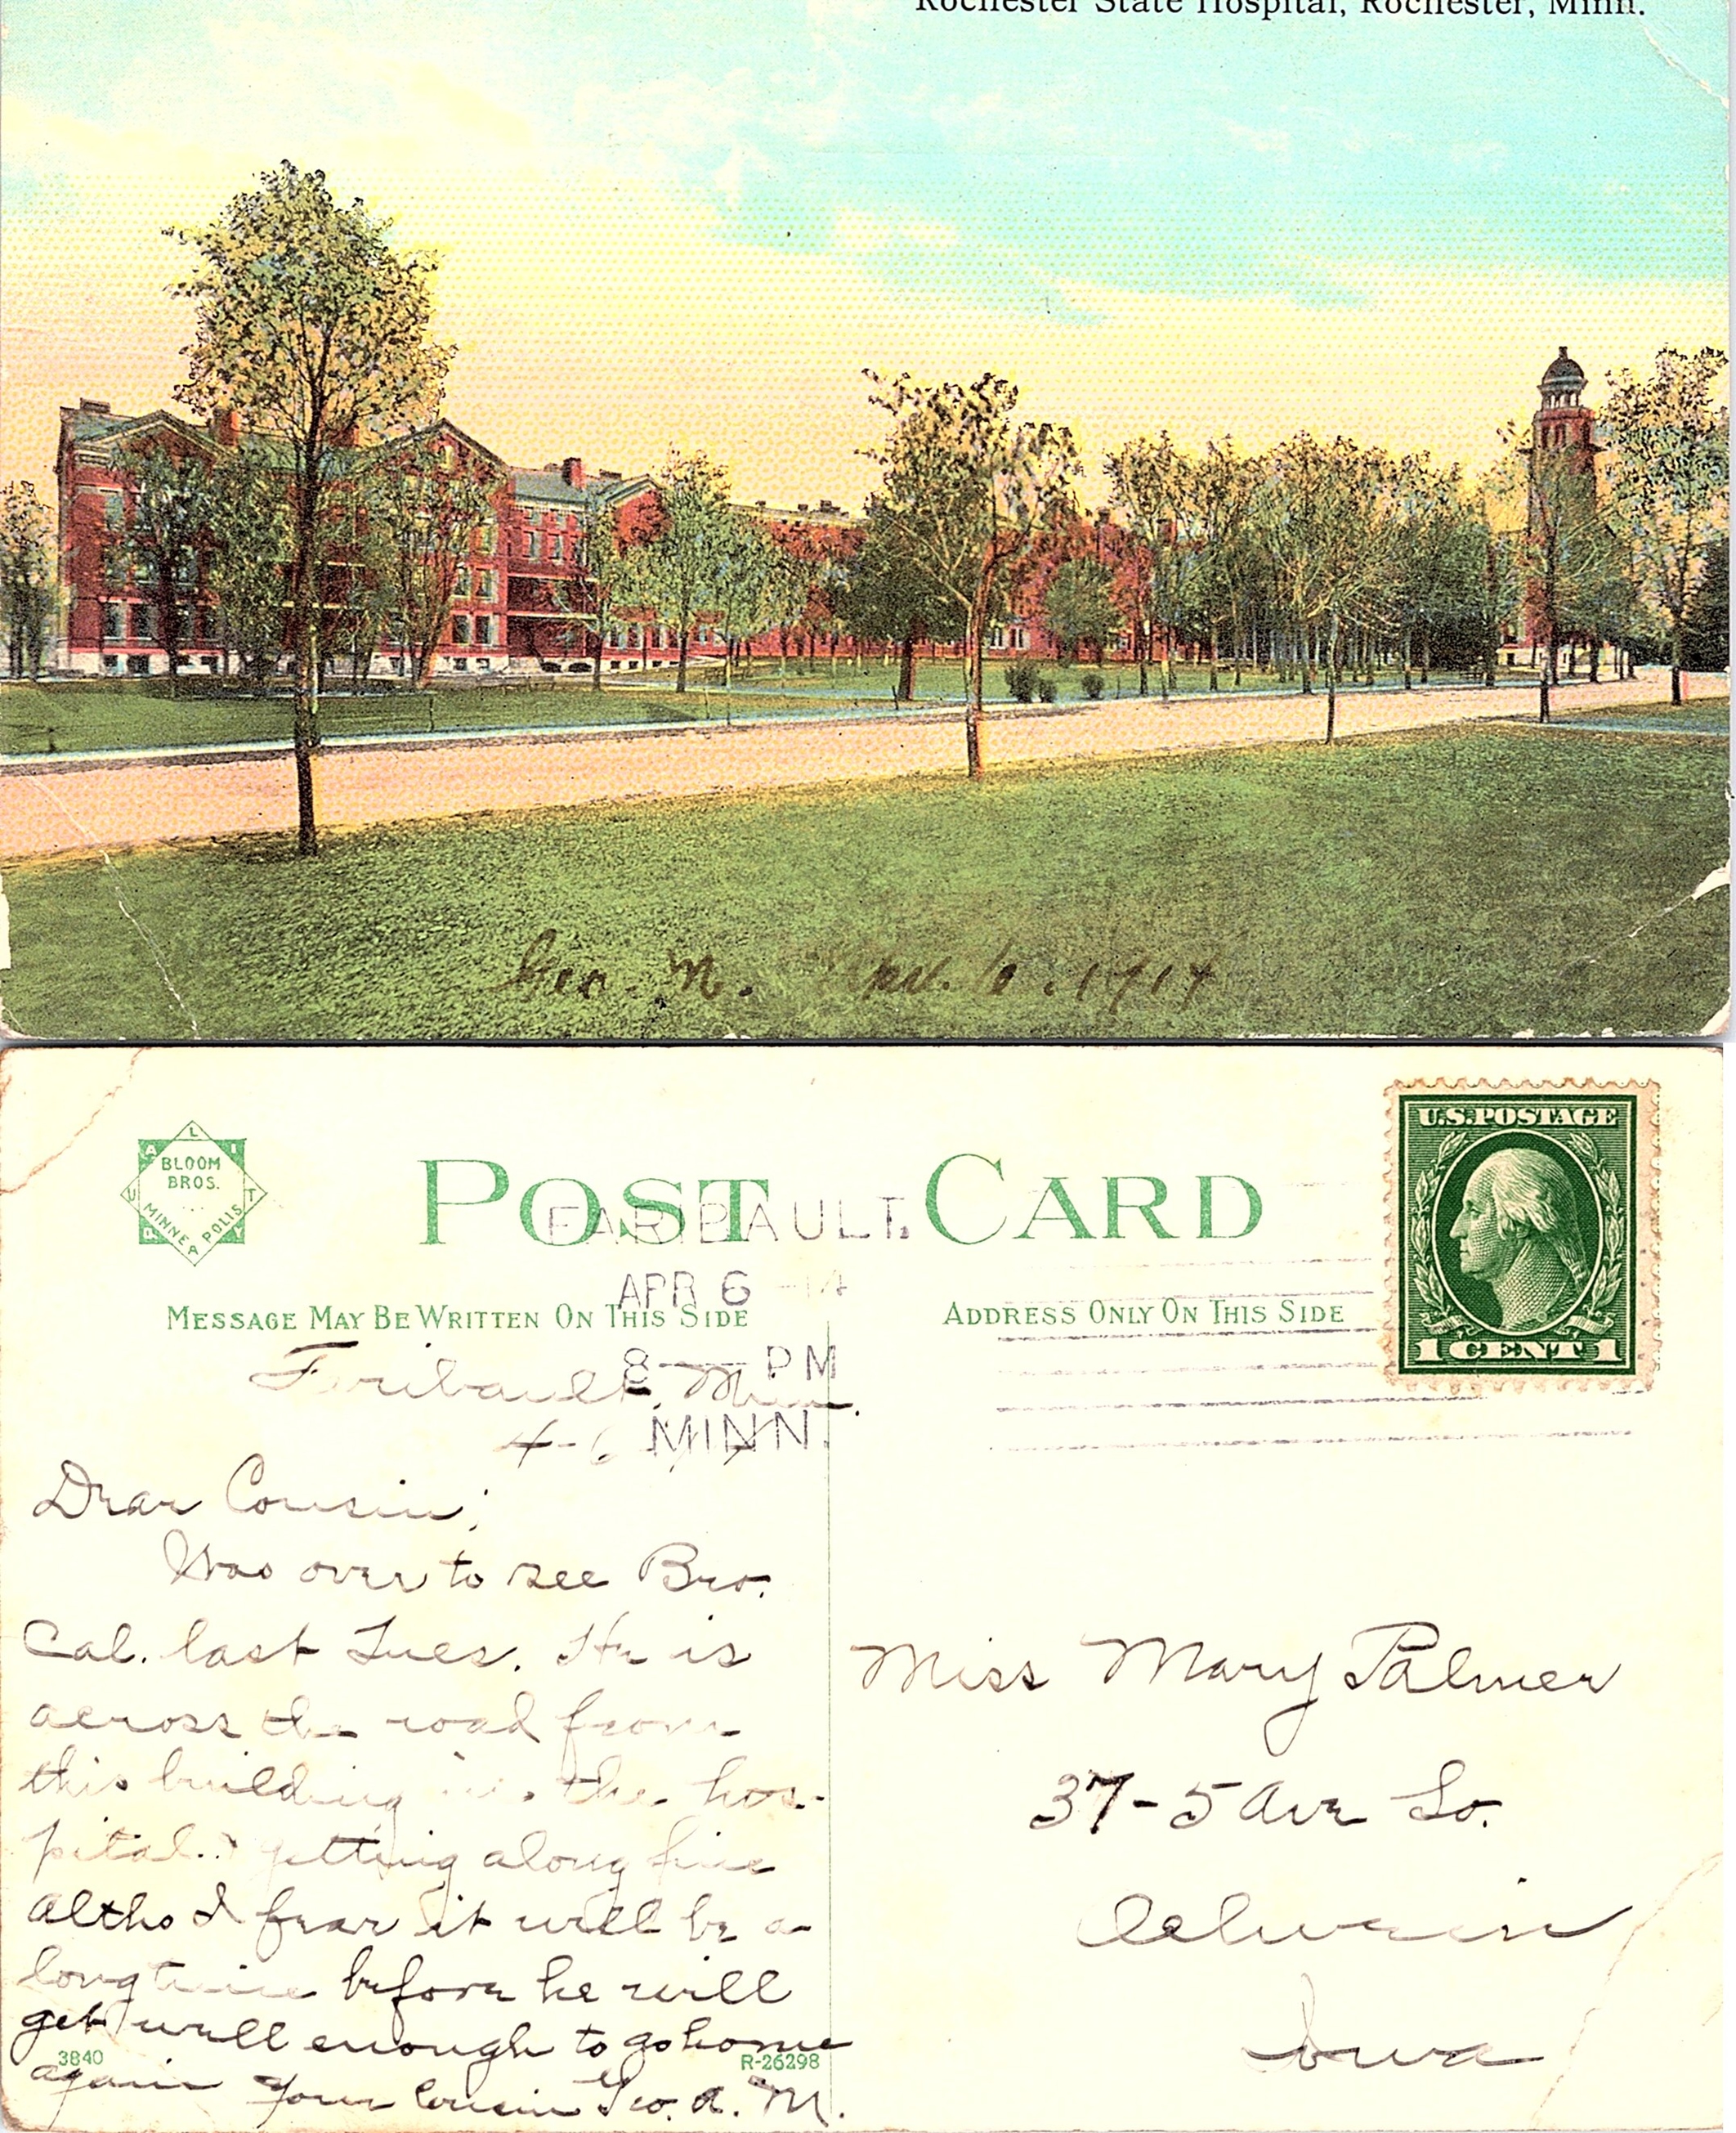 Rochester State Hospital, Rochester, Minn.
Geo. M. Apr. 6. 1914
QUALITY
BLOOM
BROS.
MINNEAPOLIS
POST CARD
FARIBAULT.
APR 6 -14
8 — PM
MINN.
MESSAGE MAY BE WRITTEN ON THIS SIDE
ADDRESS ONLY ON THIS SIDE
U.S. POSTAGE
1 CENT 1
Faribault, Minn.
4-6
Dear Cousin;
Was over to see Bro.
Cal. last Tues. He is
across the road from
this building in the hos-
pital. getting along fine
altho I fear it will be a
long time before he will
get well enough to go home
again Your Cousin Geo. A. M.
3840
R-26298
Miss Mary Palmer
37-5 Ave So.
Oelwein
Iowa